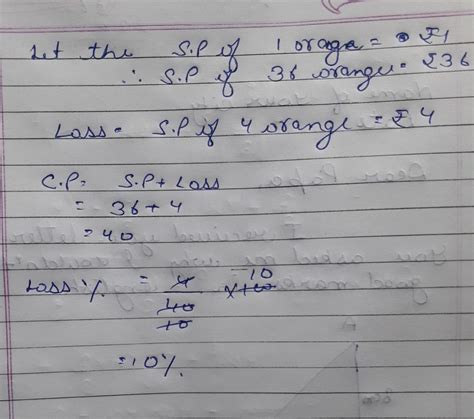 Let the S.P if 1 oraga = ₹1
∴ S.P if 36 orange = ₹36
Loss = S.P if 4 orange = ₹4
C.P = S.P + Loss
= 36 + 4
= 40
Loss % = 4/40 × 100
10 10
= 10%